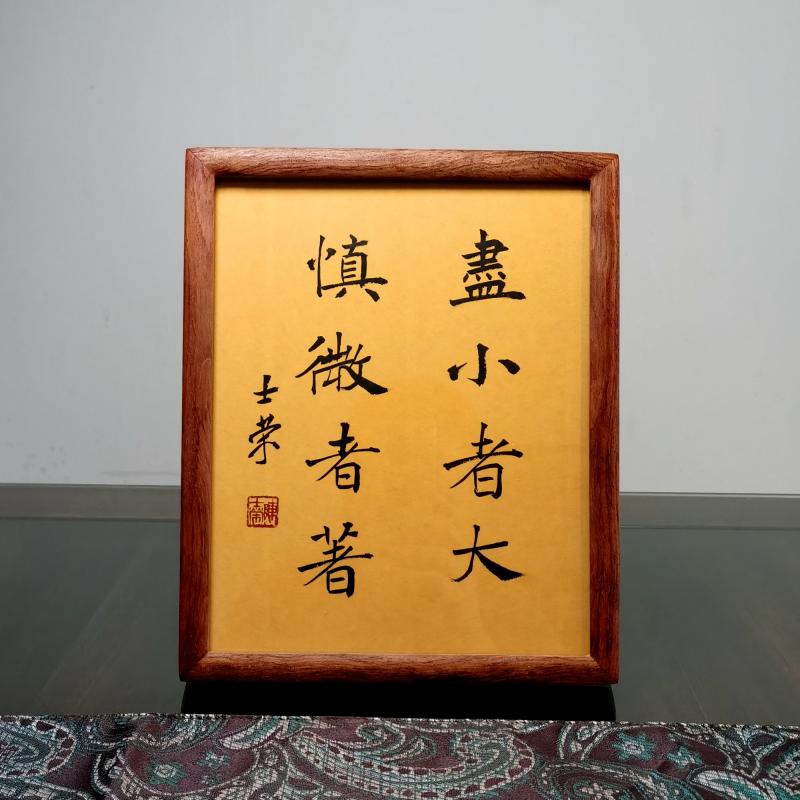 盡小者大
慎微者著
士荣